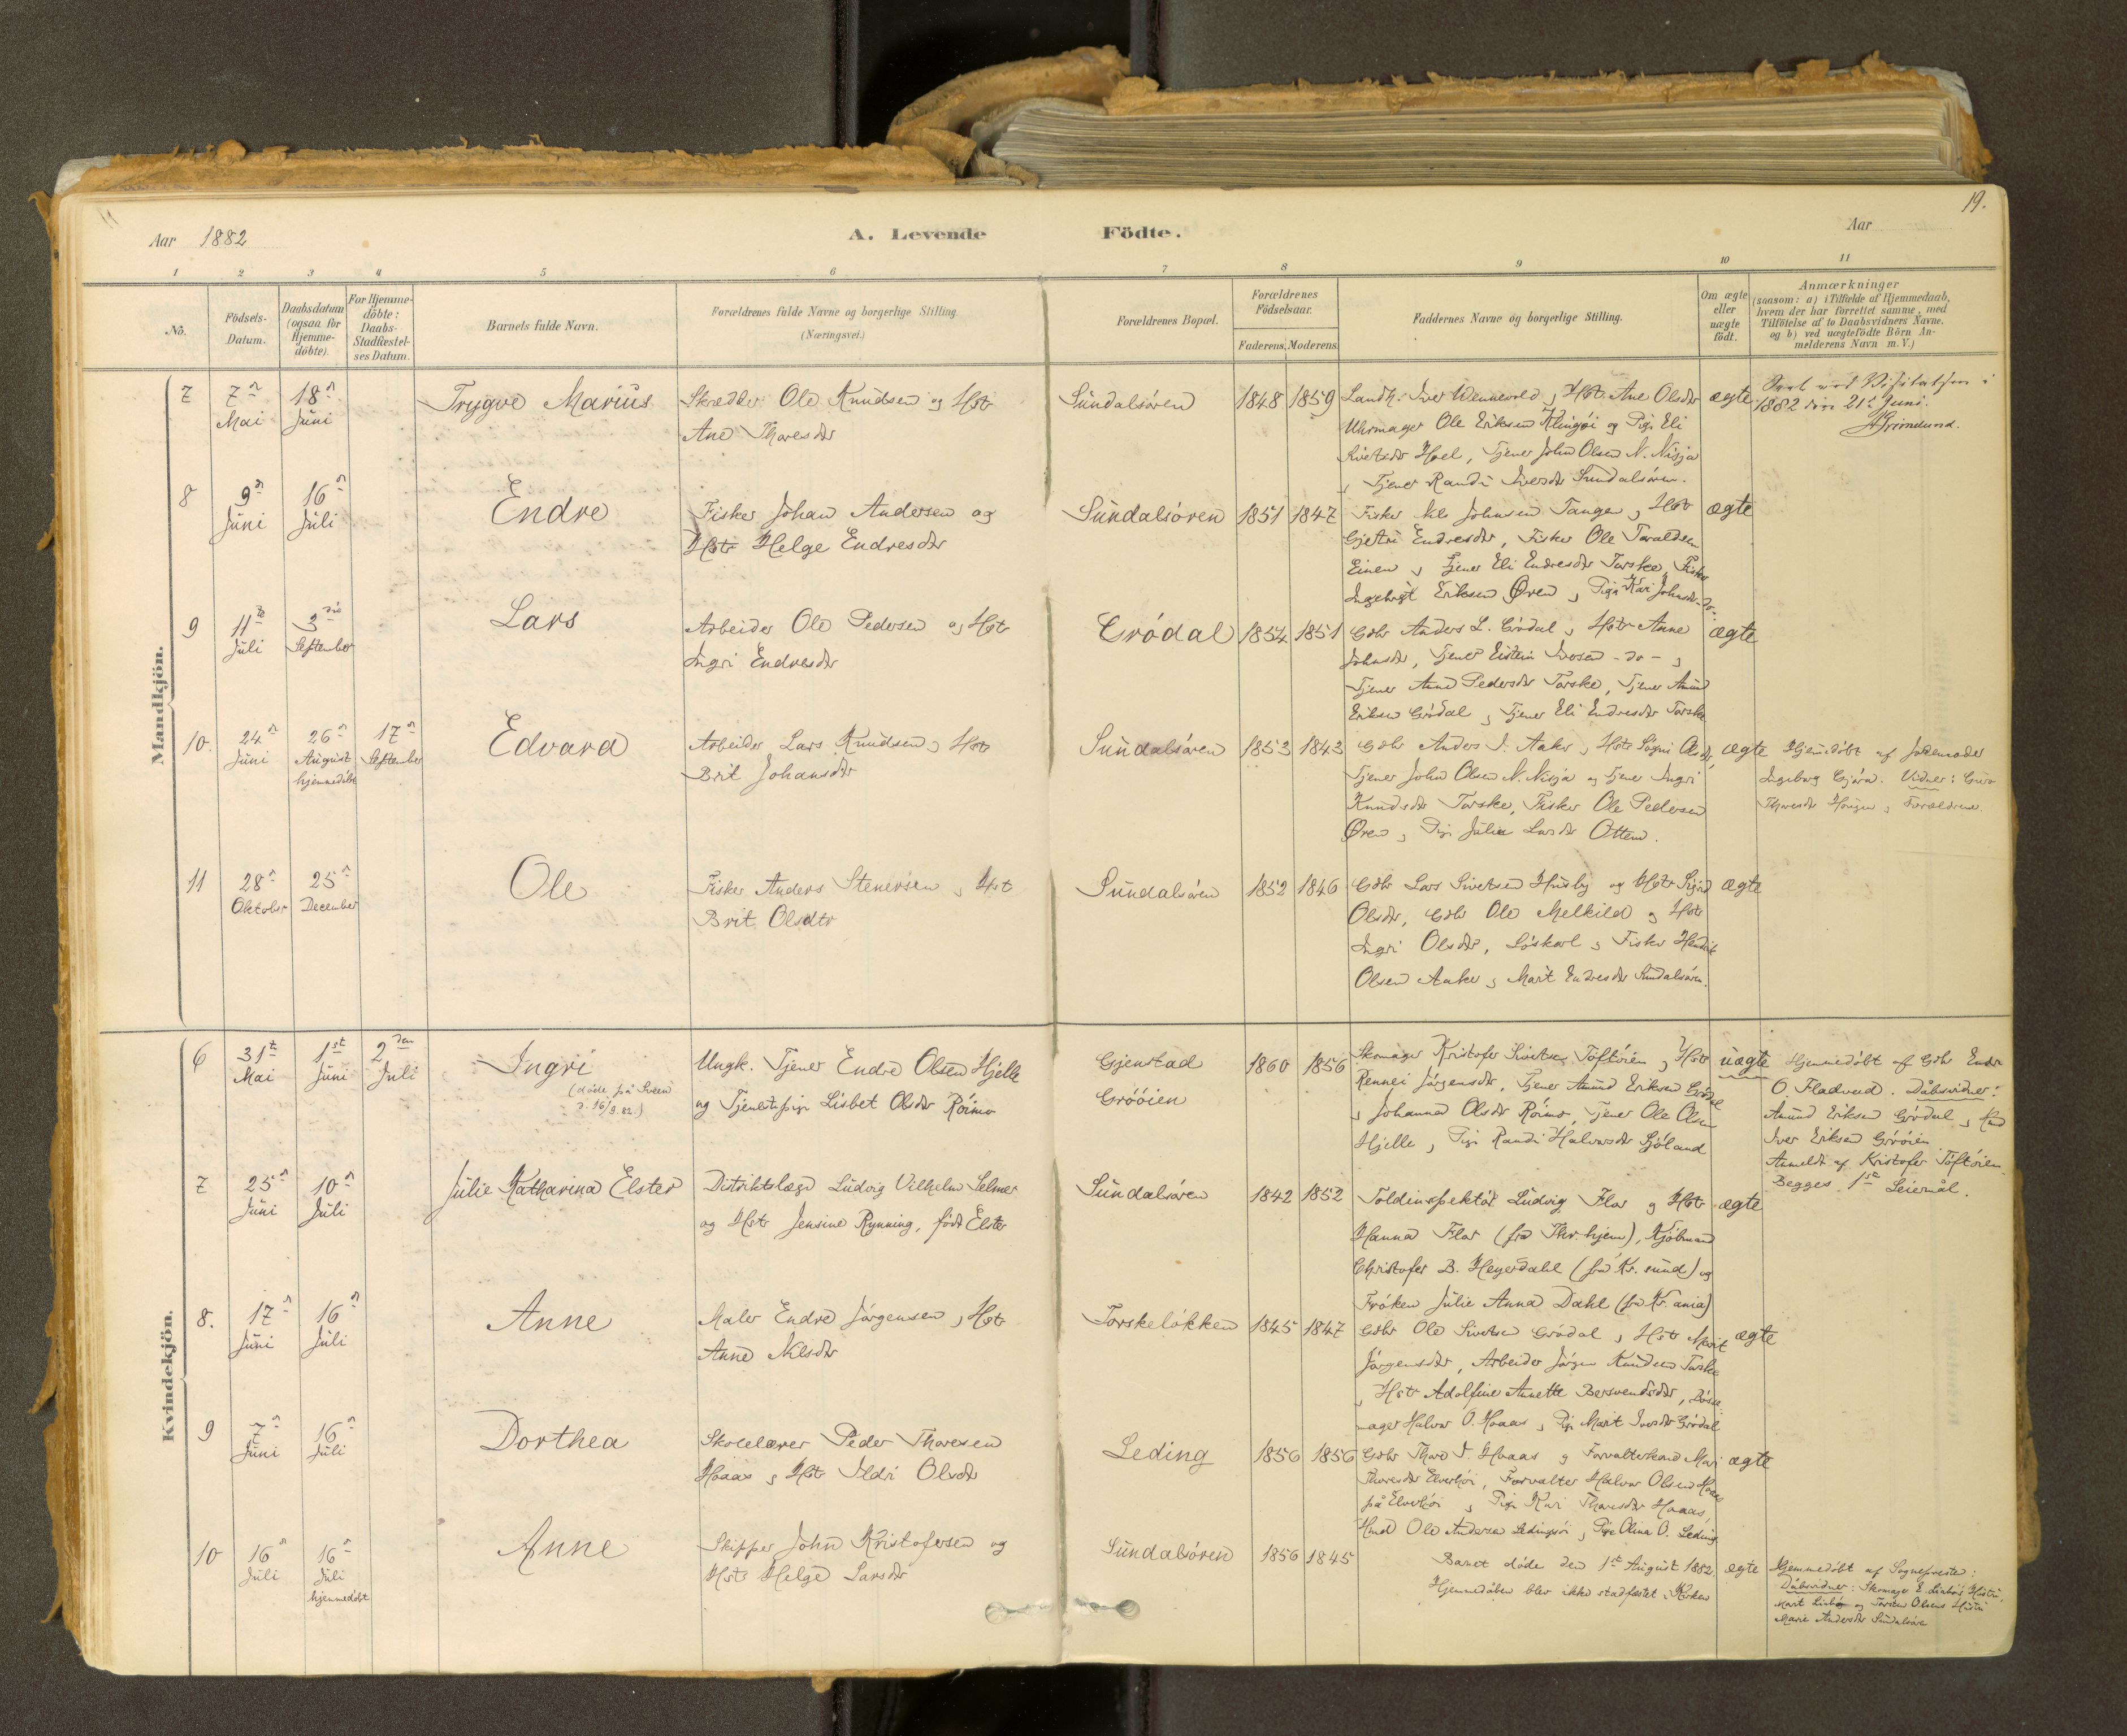 19.
Aar 1882
A. Levende Födte.
Aar
1 2 3 4 5 6 7 8 9 10 11
No.
Födsels-
Datum.
Daabsdatum
(ogsaa for
Hjemme-
döbte)
For Hjemme-
döbte:
Daabs-
Stadfæstel-
ses Datum.
Barnets fulde Navn.
Forældrenes fulde Navne og borgerlige Stilling
(Næringsvei.)
Forældrenes Bopæl.
Forældrenes
Födselsaar.
Faderens. Moderens.
Faddernes Navne og borgerlige Stilling.
Om ægte
eller
uægte
födt.
Anmærkninger
(saasom: a) i Tilfælde af Hjemmedaab,
hvem der har forrettet samme, med
Tilföielse af to Daabsvidners Navne.
og b) ved uægtefödte Börn An-
melderens Navn m. V.)
Mandkjön.
7
7n
Mai
18n
Juni
Trygve Marius
Skrædder Ole Knudsen og Hstr
Ane Thoresdr
Sundalsören
1848 1859
Landh. Iver Wennevold, Hstr. Ane Olsdr
Uhrmager Ole Eriksen Klingöi og Pige Eli
Sivertsdr Hoel, Tjener John Olsen N. Nisja
, Tjener Randi Iversdr Sundalsören.
ægte
1882 den 21. Juni.
8
9n
Juni
16n
Juli
Endre
Fisker Johan Andersen og
Hstr Helge Endresdr
Sundalsören
1851 1847
Fisker Johnsen Tange, Hstr
Gjertri Endresdr, Fisker Ole Taraldsen
Einen, Tjener Eli Endresdr Torske, Fisker
Ingebrigt Eriksen Ören, Pige Kari Johnsdr -do-
ægte
9
11te
Juli
3die
September
Lars
Arbeider Ole Pedersen og Hstr
Ingri Endresdr
Grödal
1854 1851
Gdbr Anders L. Grödal, Hstr Anne
Johnsdr, Tjener Eistein Iversen -do- ,
Tjener Anne Pedersdr Torske, Tjener Amund
Eriksen Grödal, Tjener Eli Endresdr Torske
ægte
10.
24n
Juni
26n
August
hjemmedöbt
17n
September
Edvard
Arbeider Lars Knudsen, Hstr
Brit Johansdr
Sundalsören
1853 1843
Gdbr Anders I. Aaker, Hstr Sigri Olsdr,
Tjener John Olsen N. Nisja og Tjener Ingri
Knudsdr Torske, Fisker Ole Pedersen
Øren, Pige Julia Larsdr Ottem.
ægte
Hjemmedöbt af Jordemoder
Ingeborg Gjöra. Vidner: Guro
Thoresdr Hougen, Forældrene.
11
28n
Oktober
25n
December
Ole
Fisker Anders Stenersen, Hstr
Brit Olsdtr
Sundalsören
1852 1846
Gdbr Lars Sivertsen Husby og Hstr Sigrid
Olsdr, Gdbr Ole Melkild og Hstr
Ingri Olsdr, Löskarl, Fisker Hendrik
Olsen Aaker, Marit Endresdr Sundalsören.
ægte
Kvindekjön.
6
31te
Mai
1st
Juni
2den
Juli
Ingri
(döde på Sveen
d. 16/9.82.)
Ungk. Tjener Endre Olsen Hjelle
og Tjenestepige Lisbet Olsdr Röimo
Gjenstad
Gröóien
1860 1856
Skomager Kristofer Sivertsen Toftöien, Hstr
Rennei Jörgensdr, Tjener Amund Eriksen Grödal
, Johanna Olsdr Röimo, Tjener Ole Olsen
Hjelle, Pige Randi Halvorsdr Sjöland
uægte
Hjemmedöbt af Gdbr Endr
O. Fladvad. Dåbsvidner:
Amund Eriksen Grödal,
Iver Eriksen Gröóien
Anmeldt af Kristofer Toftöien.
Begges 1st Leiermål.
7
25n
Juni
10n
Juli
Julie Katharina Elster
Distriktslæge Ludvig Vilhelm Selmer
og Hstr Jensine Rynning, födt Elster
Sundalsören
1842 1852
Toldinspektör Ludvig Flor og Hstr
Hanna Flor (fra Thr.hjem), Kjöbmand
Christofer B. Heyerdahl (fra Kr. sund) og
Fröken Julie Anna Dahl (fra Kr.ania)
ægte
8.
17n
Juni
16n
Juli
Anne
Maler Endre Jörgensen, Hstr
Anne Nilsdr
Torskelökken
1845 1847
Gdbr Ole Sivertsen Grödal, Hstr Marit
Jörgensdr, Arbeider Jörgen Knudsen Torske
, Hstr Adolfine Annette Bersvendsdr, Bösse-
mager Halvor O. Hoaas, Pige Marit Iversdr Grödal
ægte
9
7n
Juni
16n
Juli
Dorthea
Skolelærer Peder Thoresen
Hoaas, Hstr Ildri Olsdr
Leding
1856 1856
Gdbr Thore I. Hoaas og Forvalterkone Mari
Thoresdr Elverhöi, Forvalter Halvor Olsen Hoaas
på Elverhöi, Pige Kari Thoresdr Hoaas,
Ole Andersen Ledingsöi, Pige Olina O. Leding
ægte
10
16n
Juli
16n
Juli
hjemmedöbt
Anne
Skipper John Kristofersen og
Hstr Helge Larsdr
Sundalsören
1856 1845
Barnet döde den 1st August 1882.
Hjemmedåben blev ikke stadfæstet i Kirken
ægte
Hjemmedöbt af Sognepresten:
Dåbsvidner: Skomager E. Hustru,
Marit og Torsten Olsens Hustru
Marie Andersdr Sundalsöre